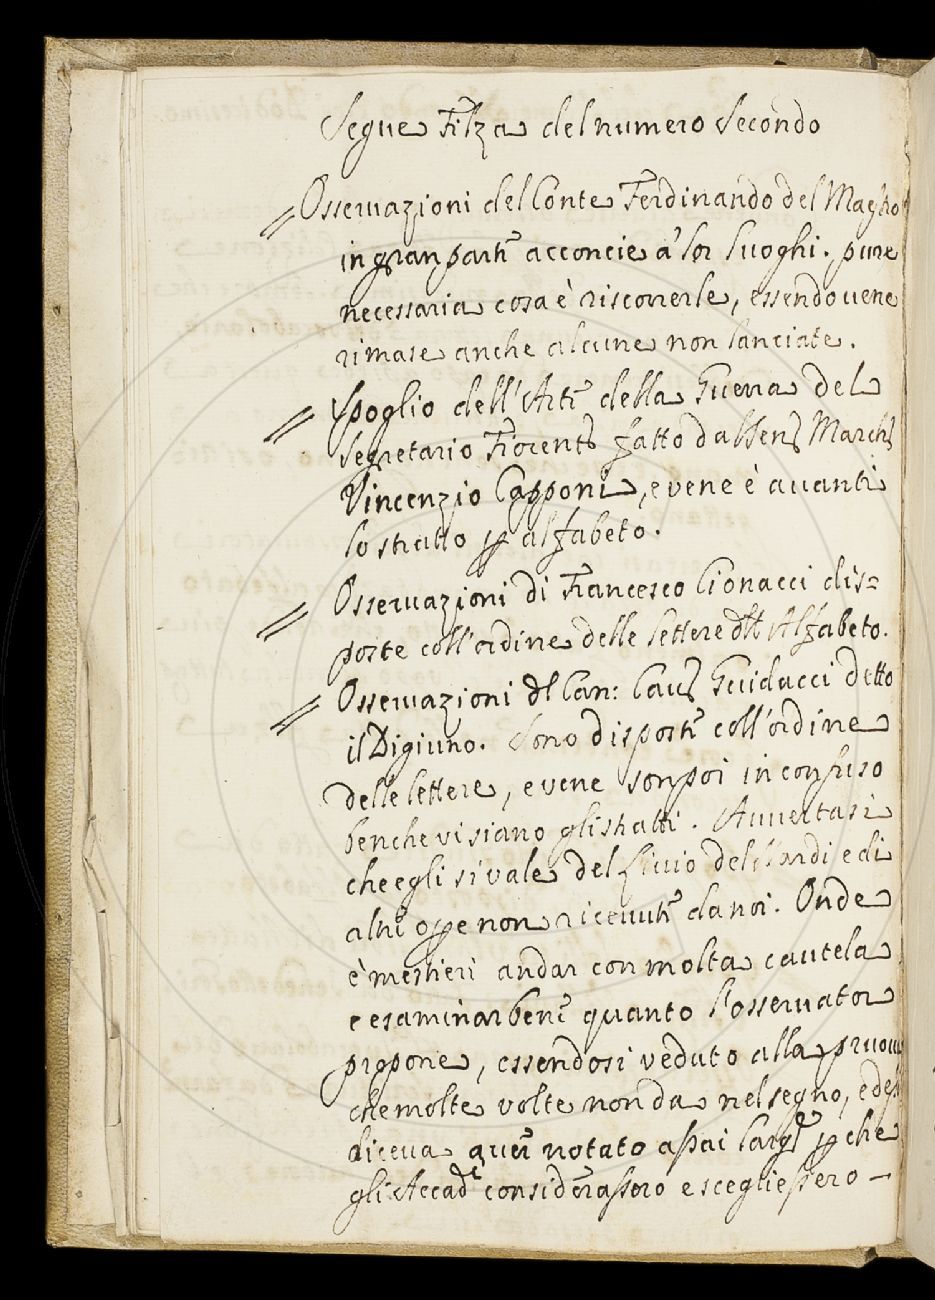 Segue Filza del numero Secondo
Osseruazioni del Conte Ferdinando del Maestro
in gran parti acconcie a' lor luoghi. pure
necessaria cosa è riscorrerle, essendouene
rimase anche alcune non lanciate.
Spoglio dell'Arte della Guerra del
Segretario Fiorent.º fatto dal Sen.r March.e
Vincenzio Capponi, e vene è auanti
lo stratto p alfabeto.
Osseruazioni di Francesco Cionacci dis=
poste coll'ordine delle lettere dll' Alfabeto.
Osseruazioni dl Can: Cau.r Guiducci detto
il Digiuno. Sono disposti coll'ordine
delle lettere, e vene son poi in confuso
benche vi siano gli stratti. Auuertasi
che egli si vale del liuio del Nardi e di
altre ope non riceuute da noi. Onde
è mestieri andar con molta cautela
e esaminar bene quanto l'osseruator
propone, essendosi veduto alla pruoua
che molte volte non da nel segno, ed e
diceua auer notato assai larg.e p che
gli Accad.ci considerassero e scegliessero –